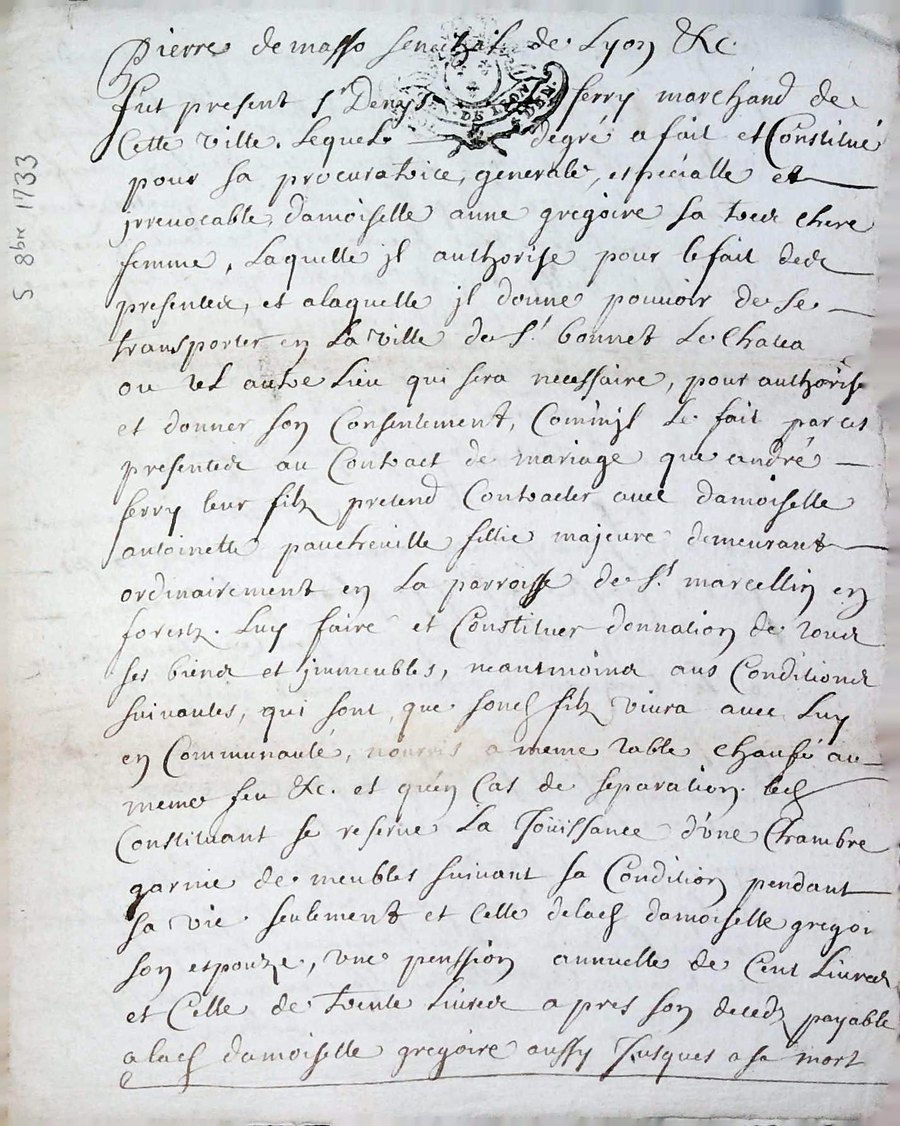 Pierre demasso senechal de Lyon &c.
fut present sr Denys ferry marchand de
Cette ville. Lequel degré a fait et Constitué
pour sa procuratrice, generale, especialle et
irrevocable, damoiselle anne gregoire sa tres chere
femme, Laquelle jl authorise pour le fait des
presentes, et alaquelle jl donne pouvoir de se
transporter en La ville de St. bonnet Le Chatea
ou tel autre Lieu qui sera necessaire, pour authorise
et donner son Consentement, Comm'jl Le fait par ces
presentes au Contract de mariage que andré
ferry leur filz pretend Contracter avec damoiselle
antoinette pauetreville fillie majeure demeurant
ordinairement en La parroisse de St. marcellin en
forestz. Luy faire et Constituer donnation de tous
ses biens et jmmeubles, neantmoins aus Conditions
suivantes, qui sont que sond filz vivra avec Luy
en Communauté, nourris a meme table chaufé au
meme feu &c. et qu'en Cas de separation led
Constituant se reserve La Joüissance d'une Chambre
garnie de meubles suivant sa Condition pendant
sa vie seulement et Celle delad damoiselle gregoi
son espouze, une penssion annuelle de Cent Livres
et Celle de trente Livres apres son deceds payable
alad damoiselle gregoire aussy Jusques a sa mort
5 8bre 1733
DE LYON